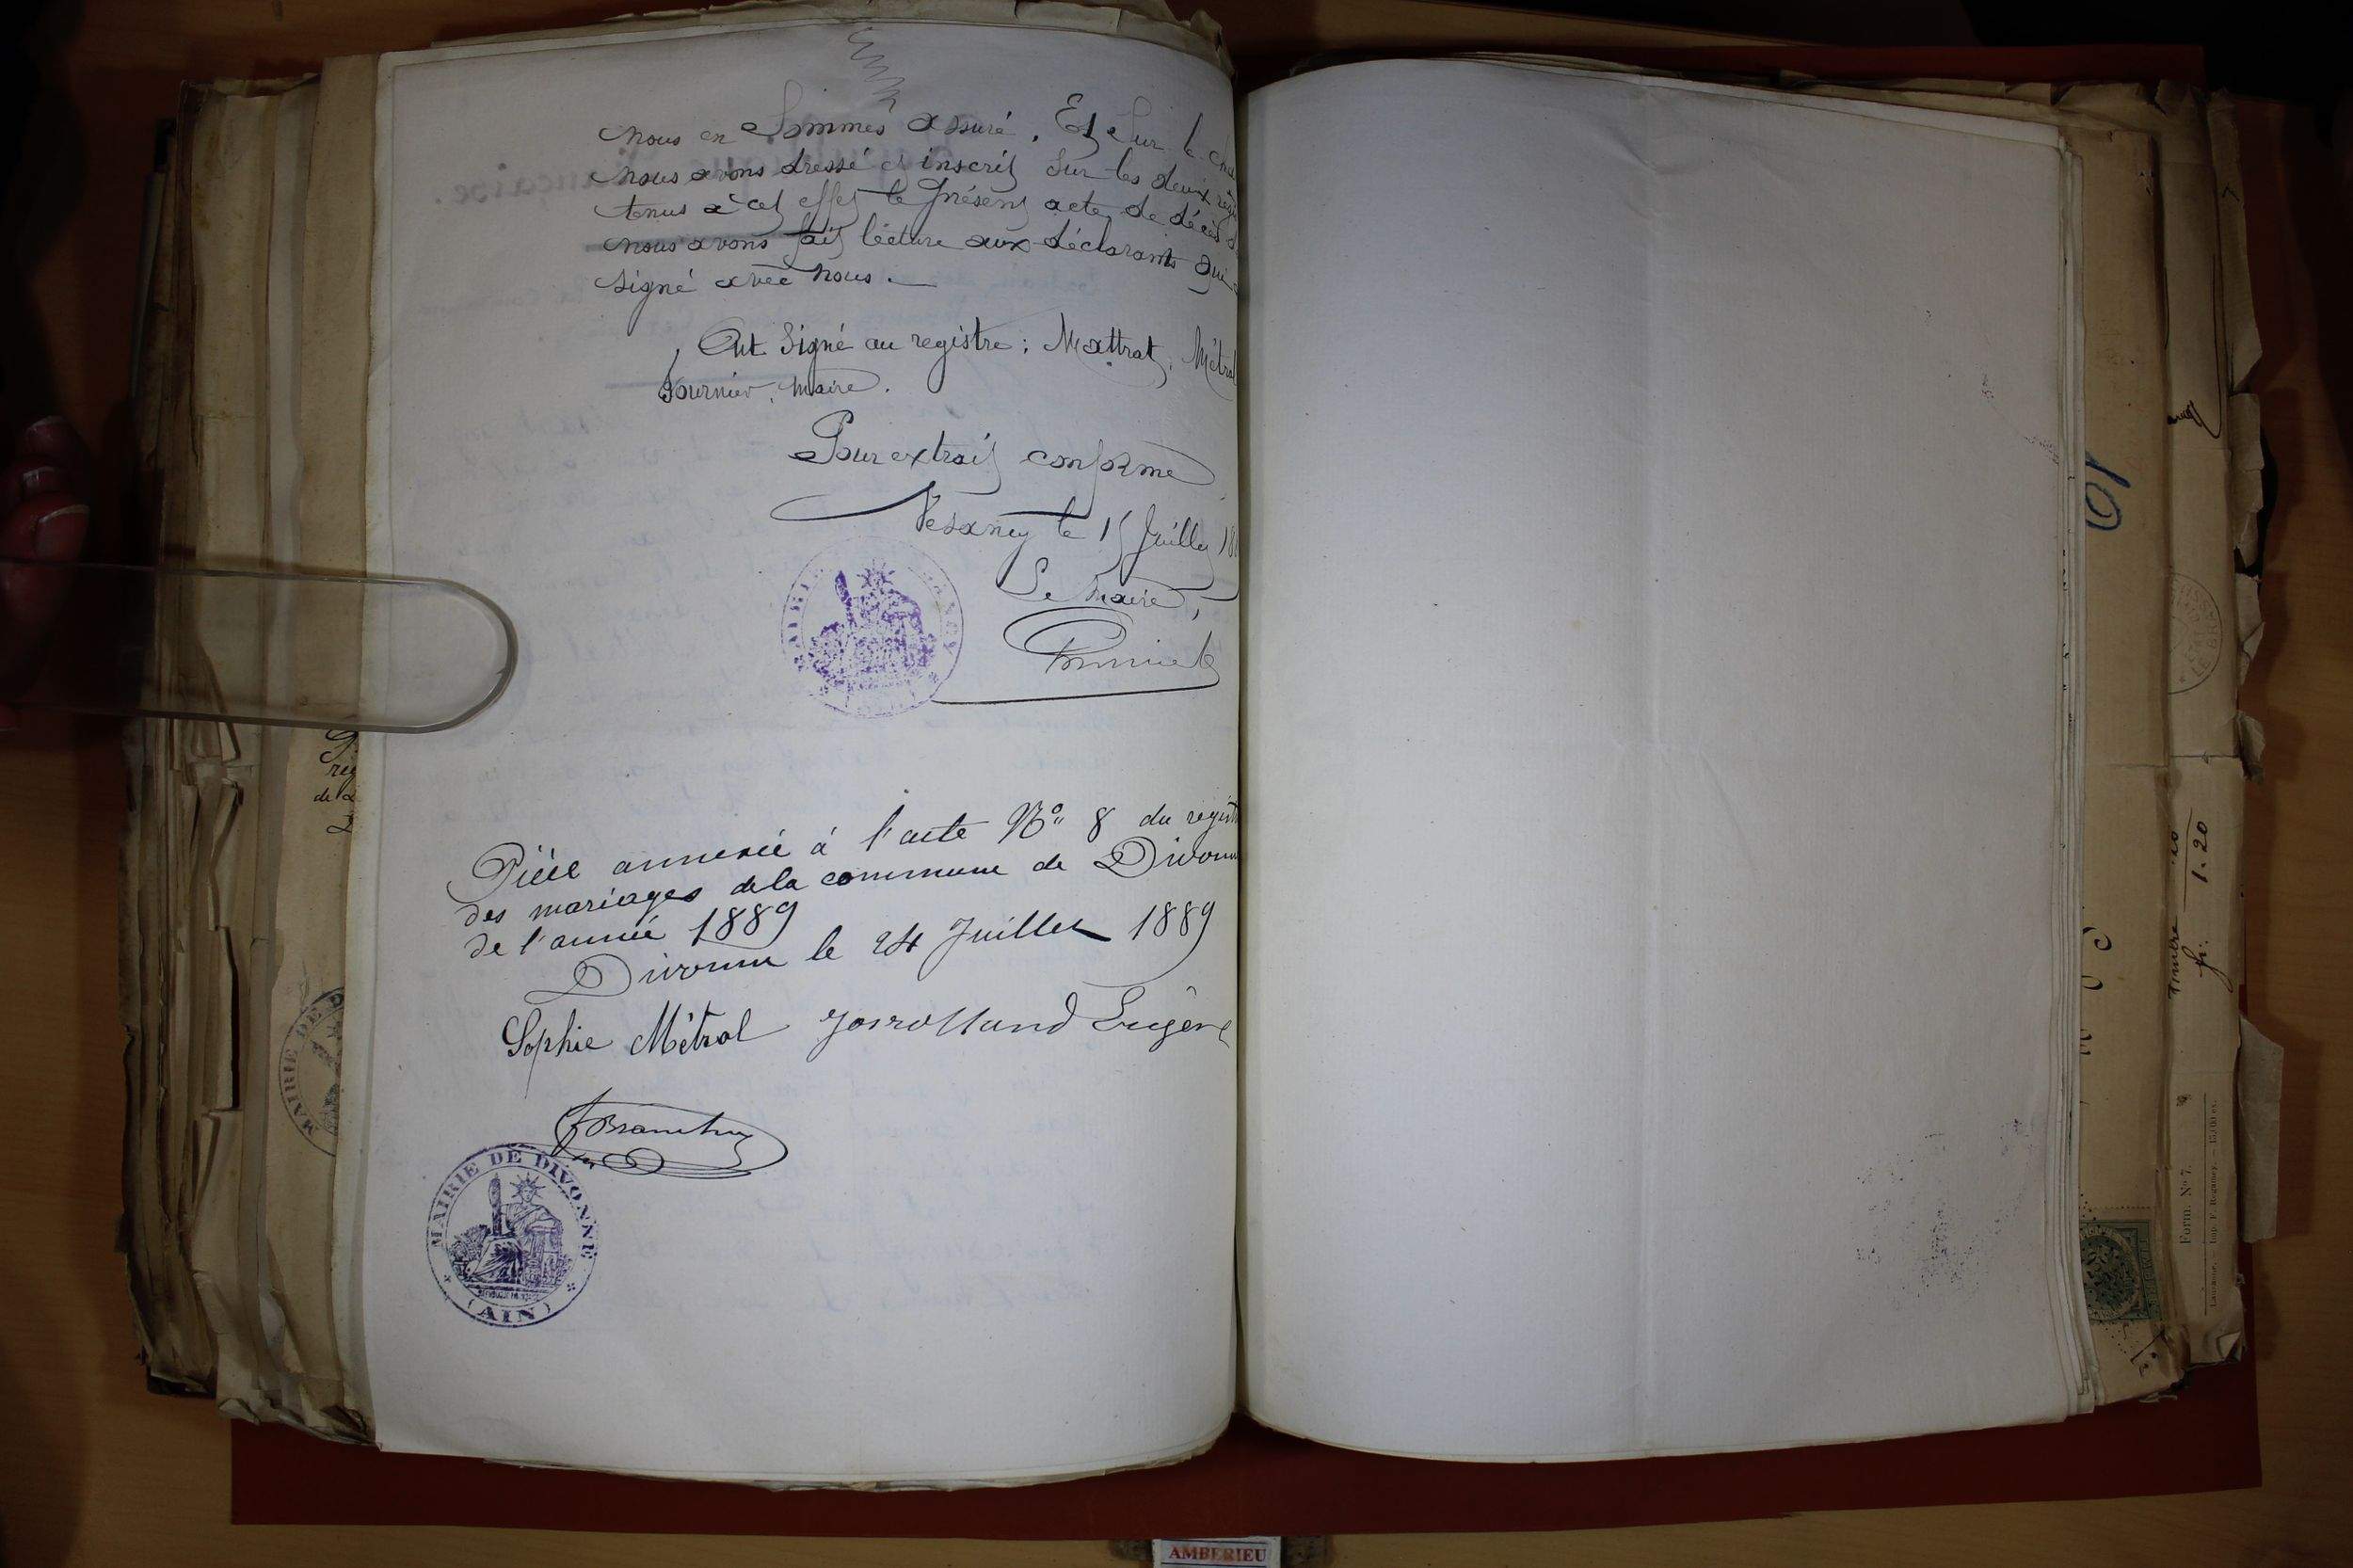 nous en Sommes assuré. Et Sur le
nous avons dressé et inscrit Sur les deux
tenus à cet effet le présent acte de décès
nous avons fait lecture aux déclarants qui
signé avec nous.
Ont Signé au registre : Mattrat, Métral
Fournier, maire.
Pour extrait conforme
Vesancy le 15 Juillet 18
Le Maire,
Pièce annexée à l'acte No 8 du regist
des mariages de la commune de Divonn
de l'année 1889
Divonne le 24 Juillet 1889
Sophie Métral Eugène
MAIRIE DE DIVONNE
(AIN)
MAIRIE DE D
1.20
Form. No 7.
AMBERIEU